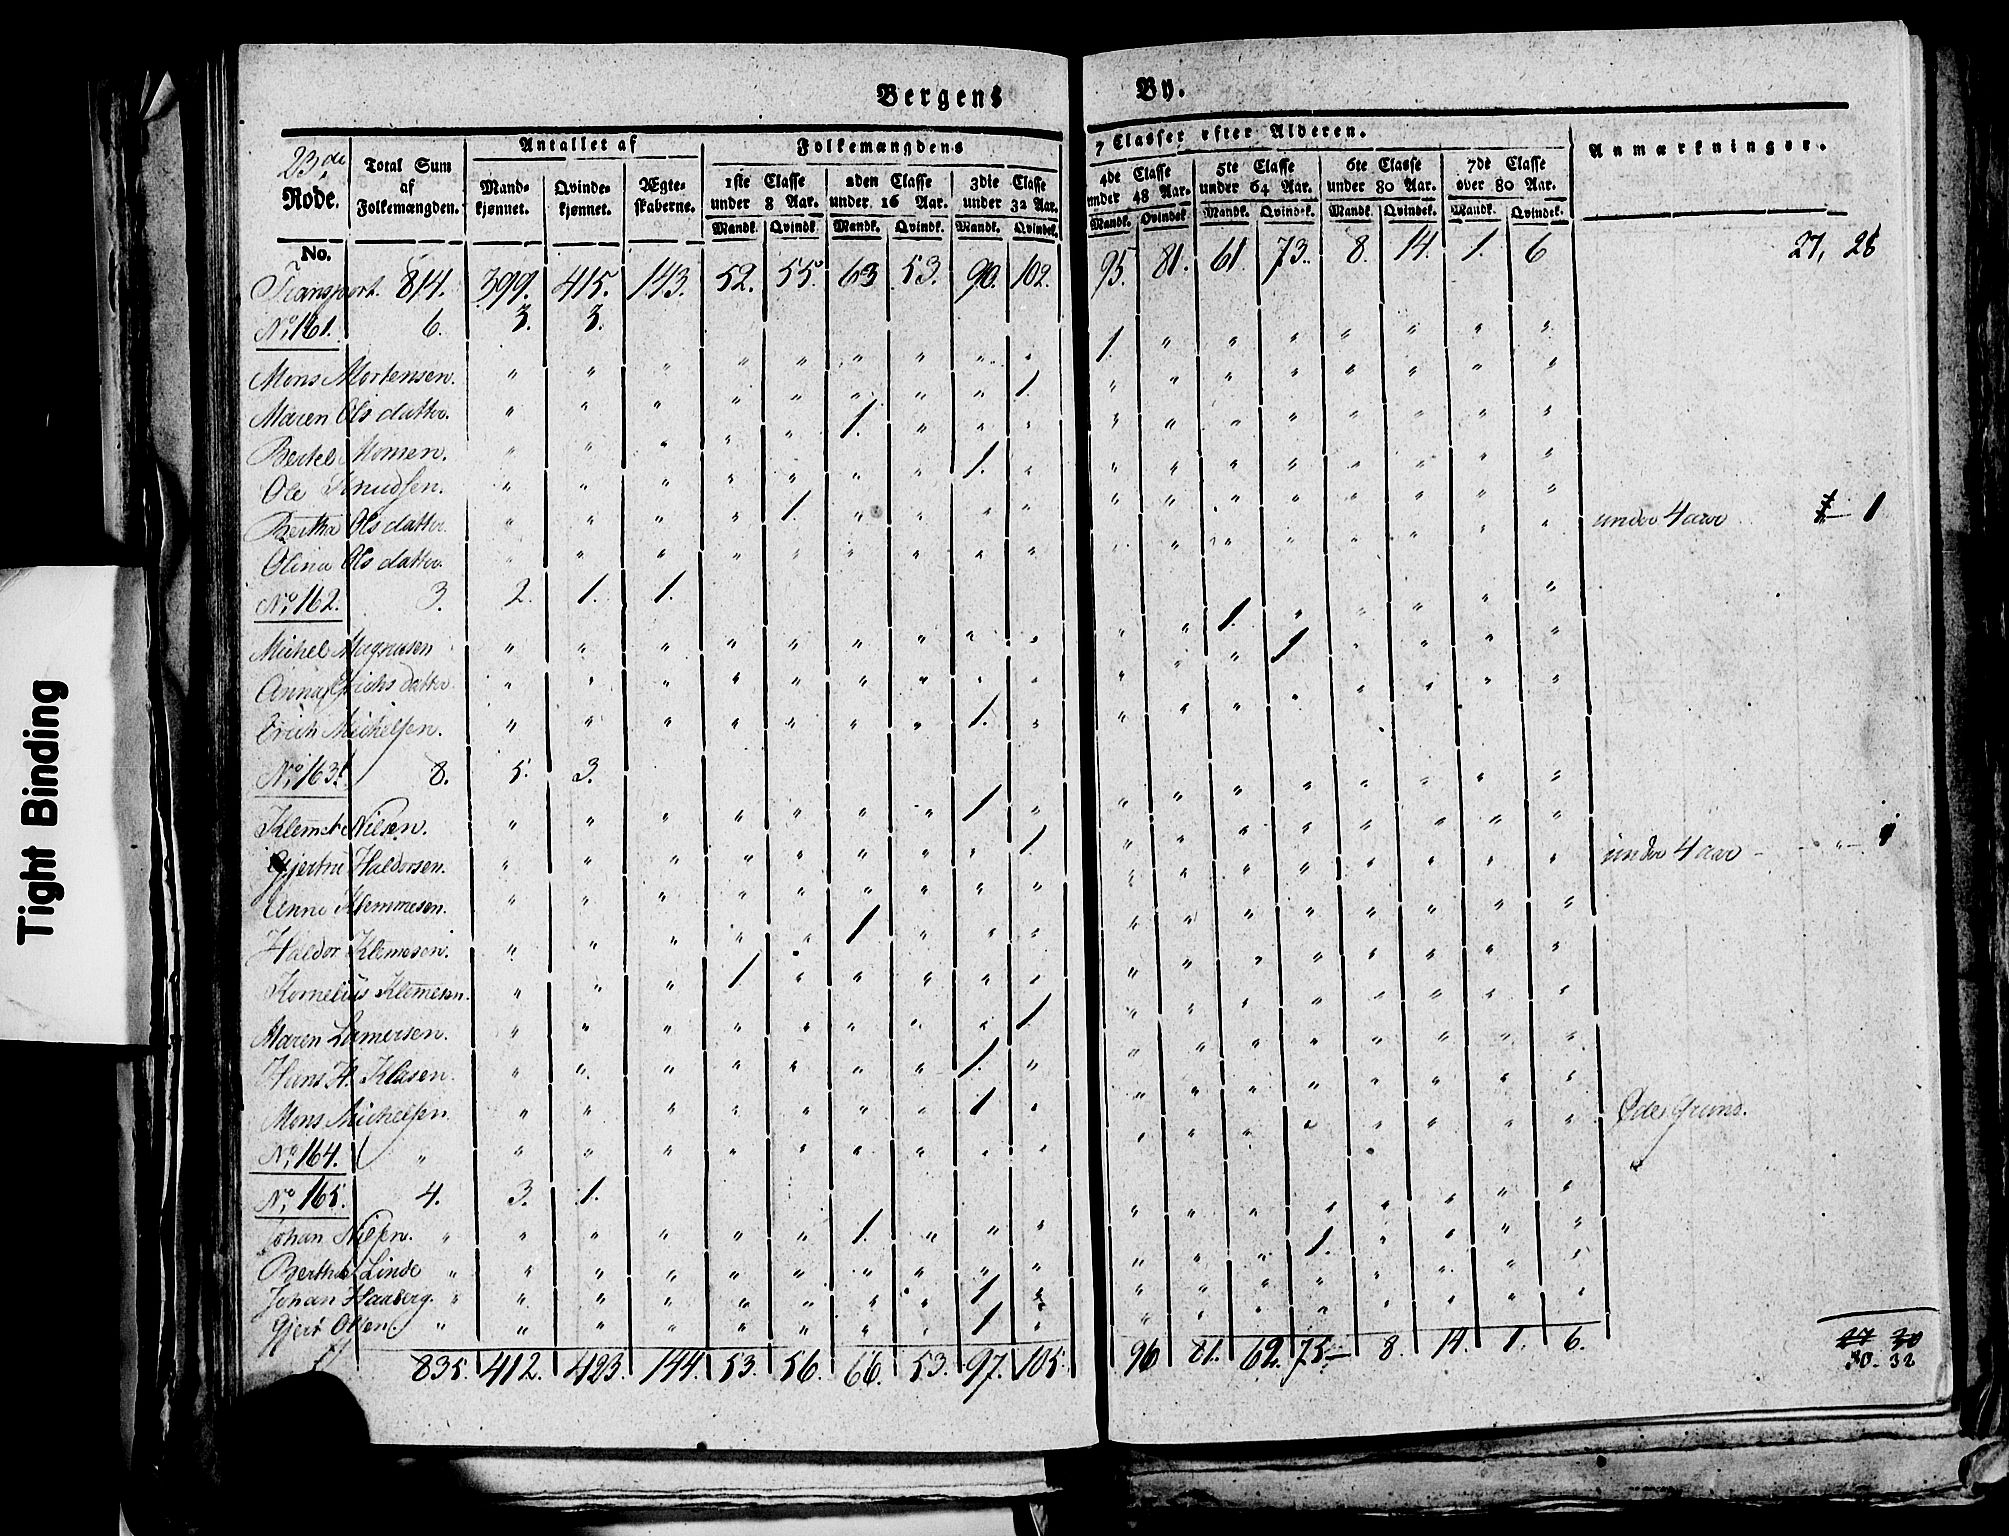 Bergens By.
23de Rode.
Total Sum af Folkemængden.
Antallet af
Mandkjønnet. Qvindekjønnet. Ægteskaberne.
Folkemængdens 7 Classer efter Alderen.
1ste Classe under 8 Aar. 2den Classe under 16 Aar. 3die Classe under 32 Aar. 4de Classe under 48 Aar. 5te Classe under 64 Aar. 6te Classe under 80 Aar. 7de Classe over 80 Aar.
Mandk. Qvindk. Mandk. Qvindk. Mandk. Qvindek. Mandk. Qvindek. Mandk. Qvindek. Mandk. Qvindek. Mandk. Qvindek.
Anmærkninger.
No.
Transport. 814. 399. 415. 143. 52. 55. 63 53. 90. 102. 95. 81. 61. 73. 8. 14. 1. 6 27,
No. 161. 6. 3. 3.
Mons Mortensen. " " " " " " " " " 1. " " " " " " "
Maren Olsdatter. " " " " " " " " 1. " " " " " " " "
Bertel Monsen. " " " " " 1. " " " " " " " " " "
Ole Knudsen. " " " " " " " 1. " " " " " " " " "
Bertha Olsdatter. " " " " 1. " " " " " " " " " " " " under 4 aar 1
Olina Olsdatter. " " " " " " " " " " " " " " " "
No. 162. 3. 2. 1. 1.
Michel Magnusen " " " " " " " " " " " 1. " " " " "
Anna Erichsdatter. " " " " " " " " " " " " 1 " " " "
Erich Michelsen. " " " " " " " 1. " " " " " " " " "
No. 163. 8. 5. 3.
Klemet Nilsen. " " " " " " " 1 " " " " " " " " "
Gjertru Haldorsen. " " " " " " " " 1. " " " " " " " "
Anne Klemmesen. " " " " " " " " " " " " " " " " " under 4 aar - " 1
Haldor Klemesen. " " " " " 1 " " " " " " " " " " "
Kornelius Klemesen. " " " 1. " " " " " " " " " " " " "
Maren Lamersen. " " " " " " " " 1 " " " " " " " "
Hans H. Klasen. " " " " " " " 1. " " " " " " " " "
Mons Michelsen " " " " " " " 1 " " " " " " " " "
No. 164. " " " " " " " " " " " " " " " " " " Øde Grund.
No. 165. 4. 3. 1.
Johan Nilsen. " " " " " " 1. " " " " " " " " " " "
Berthe Linde " " " " " " " " " " " " " 1. " " " "
Johan Haaberg. " " " " " " " " 1 " " " " " " " " "
Gjert Olsen. " " " " " " " " 1 " " " " " " " " "
835. 412. 423. 144. 53. 56. 66. 53. 97. 105. 96 81. 62. 75 8. 14. 1. 6. 30. 32
Tight Binding